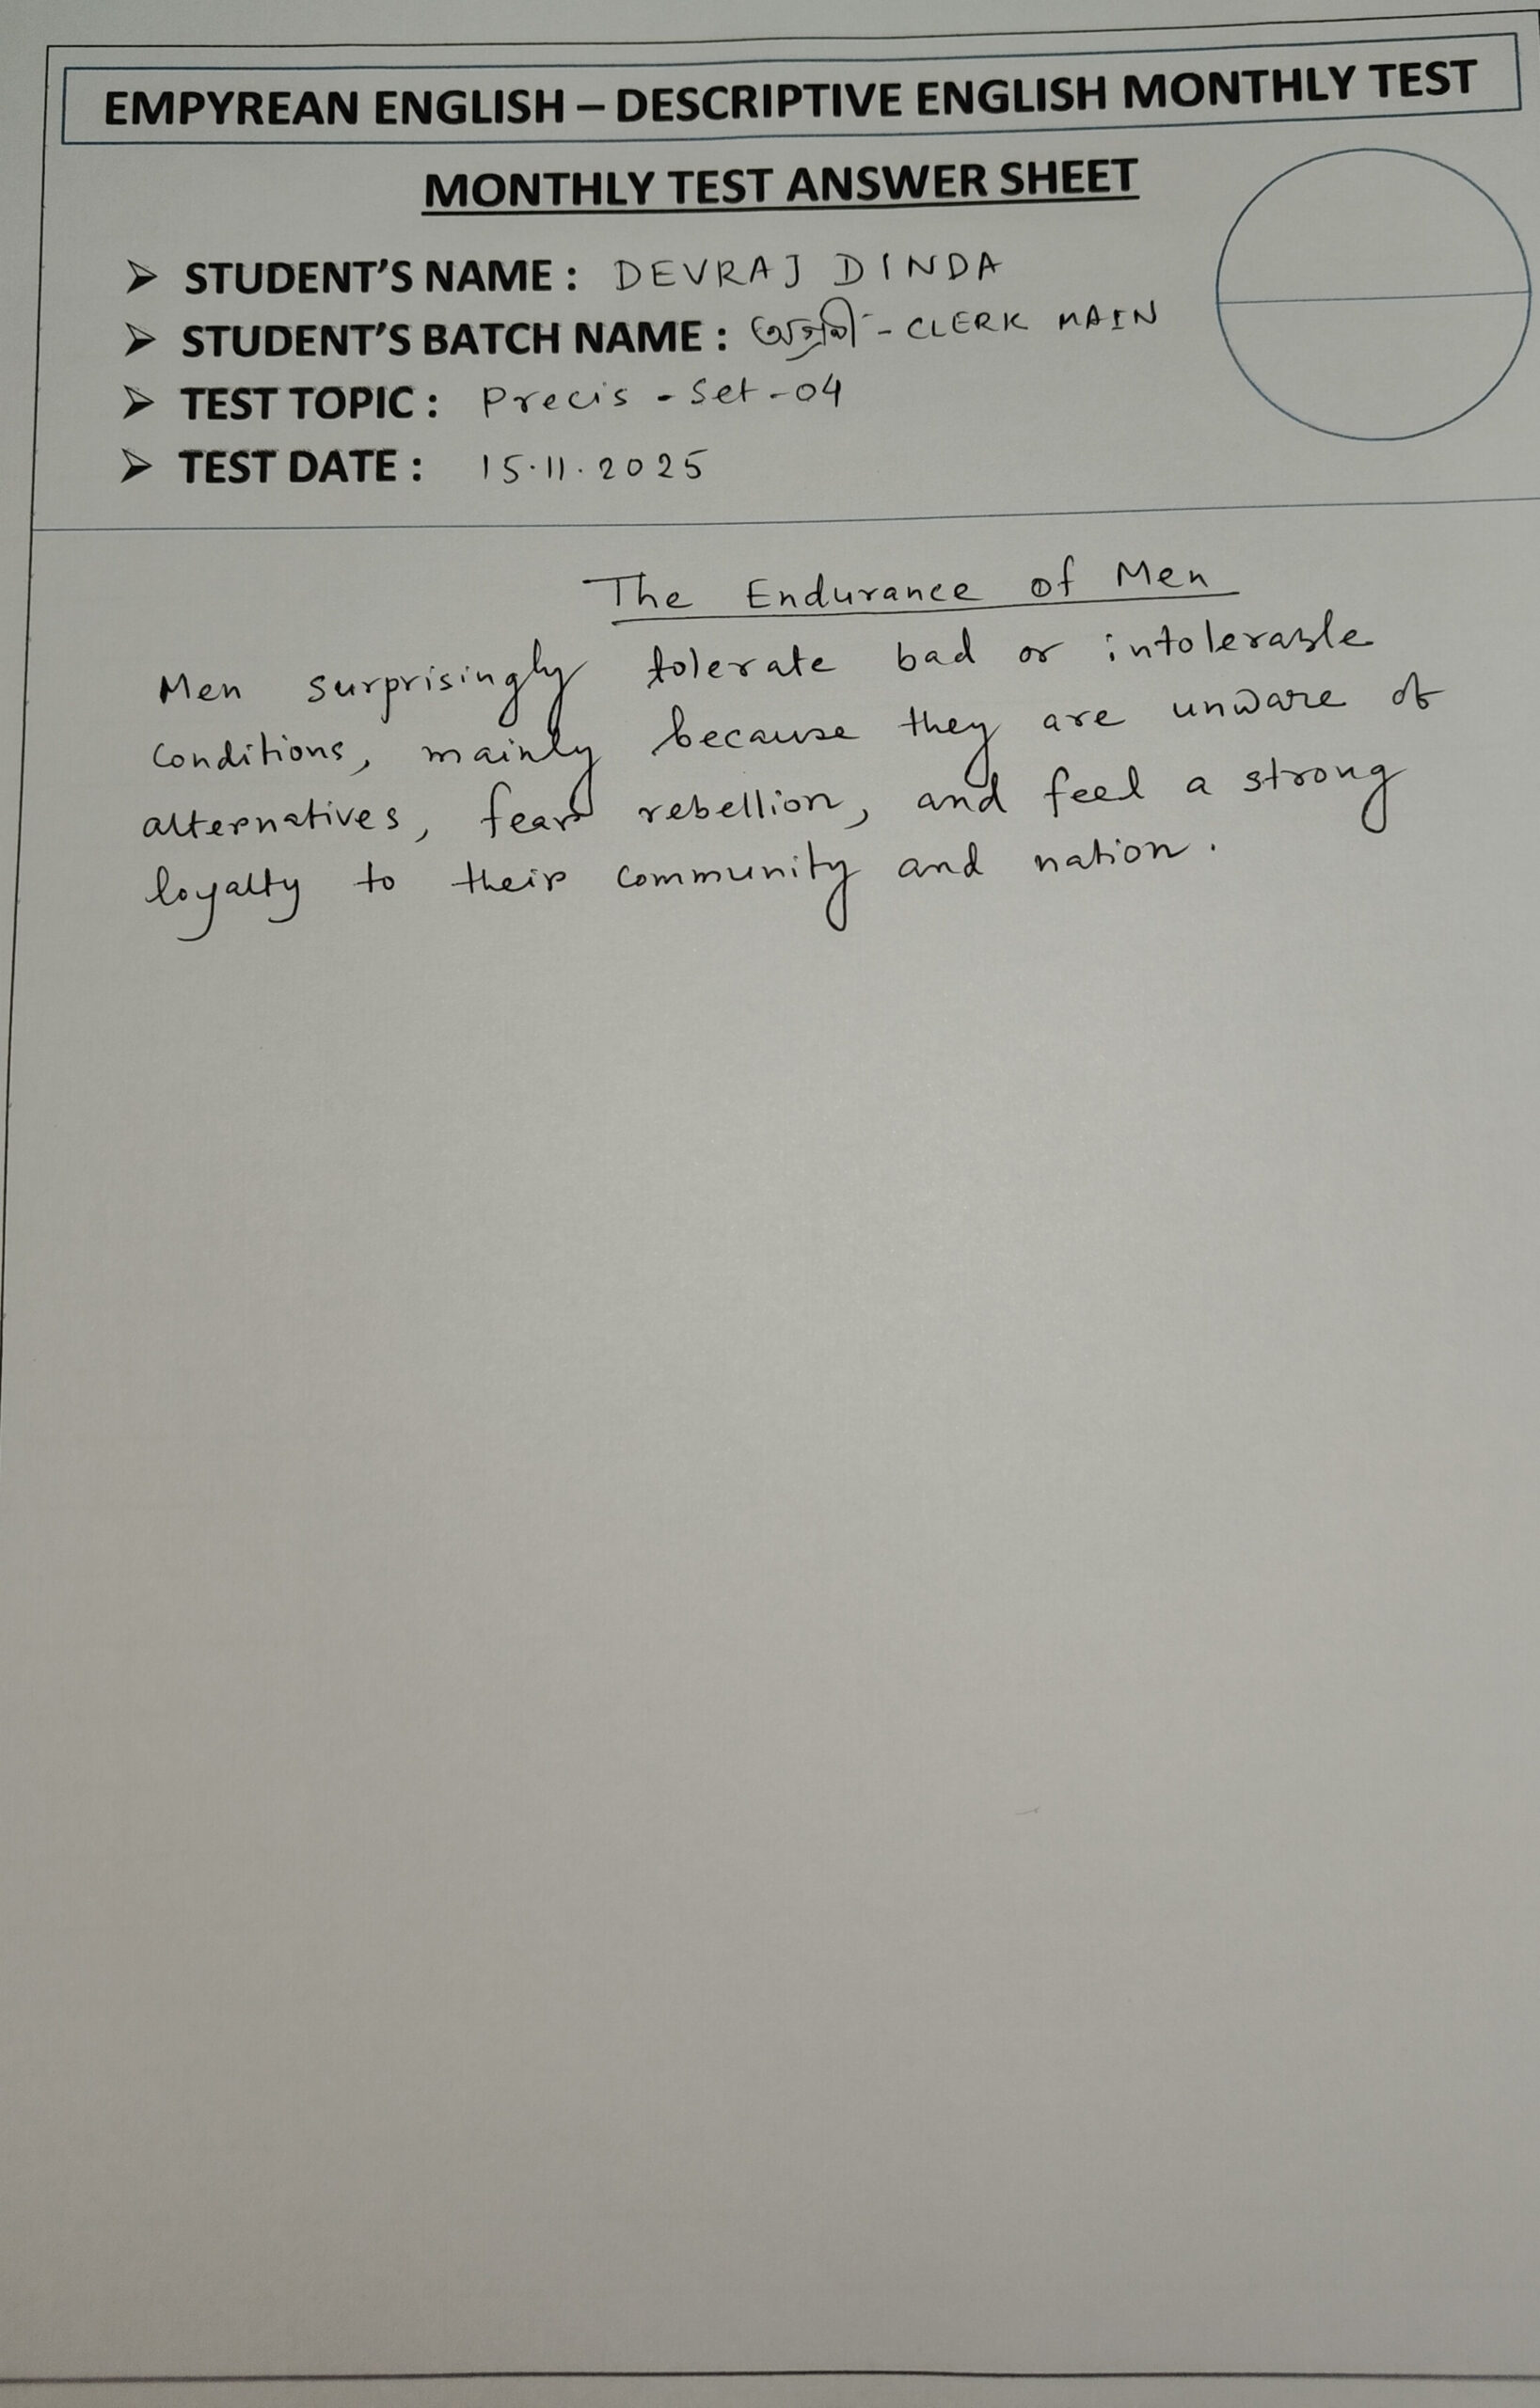 EMPYREAN ENGLISH – DESCRIPTIVE ENGLISH MONTHLY TEST
MONTHLY TEST ANSWER SHEET
➤ STUDENT'S NAME : DEVRAJ DINDA
➤ STUDENT'S BATCH NAME : - CLERK MAIN
➤ TEST TOPIC : Precis - Set - 04
➤ TEST DATE : 15.11.2025
The Endurance of Men
Men surprisingly tolerate bad or intolerable
conditions, mainly because they are unware of
alternatives, fear rebellion, and feel a strong
loyalty to their community and nation.